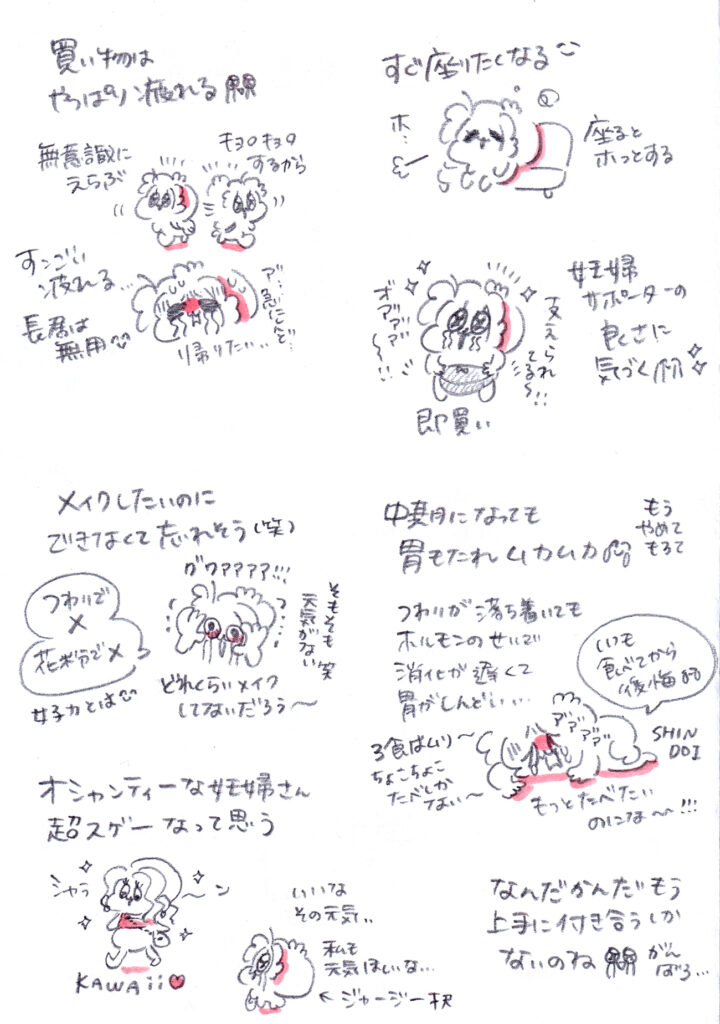 買い物は
やっぱり疲れる
無意識に
えらぶ
キョロキョロ
するから
すンごい
疲れる…
長居は
無用
ア…
急にしんど…
帰りたい…
すぐ座りたくなる
ホ…
座ると
ホッとする
妊婦
サポーターの
良さに
気づく
オアアアア〜!!
支えられ
てる〜!!
即買い
メイクしたいのに
できなくて忘れそう(笑)
つわりで
×
花粉で×
女子力とは
グワァァァァ!!!
そもそも
元気がない笑
どれくらいメイク
してないだろう〜
中期になっても
胃もたれムカムカ
もう
やめて
もろて
つわりが落ち着いても
ホルモンのせいで
消化が遅くて
胃がしんどい…
いつも
食べてから
後悔する
3食はムリ〜
ちょこちょこ
たべしか
ない〜
アアアア
SHIN
DOI
もっとたべたい
のにな〜!!!
オシャンティーな妊婦さん
超スゲーなって思う
シャラ
〜ン
KAWAii
いいな
その元気…
私も
元気ほしいな…
←ジャージ一択
なんだかんだもう
上手に付き合うしか
ないのね
がん
ばろ…